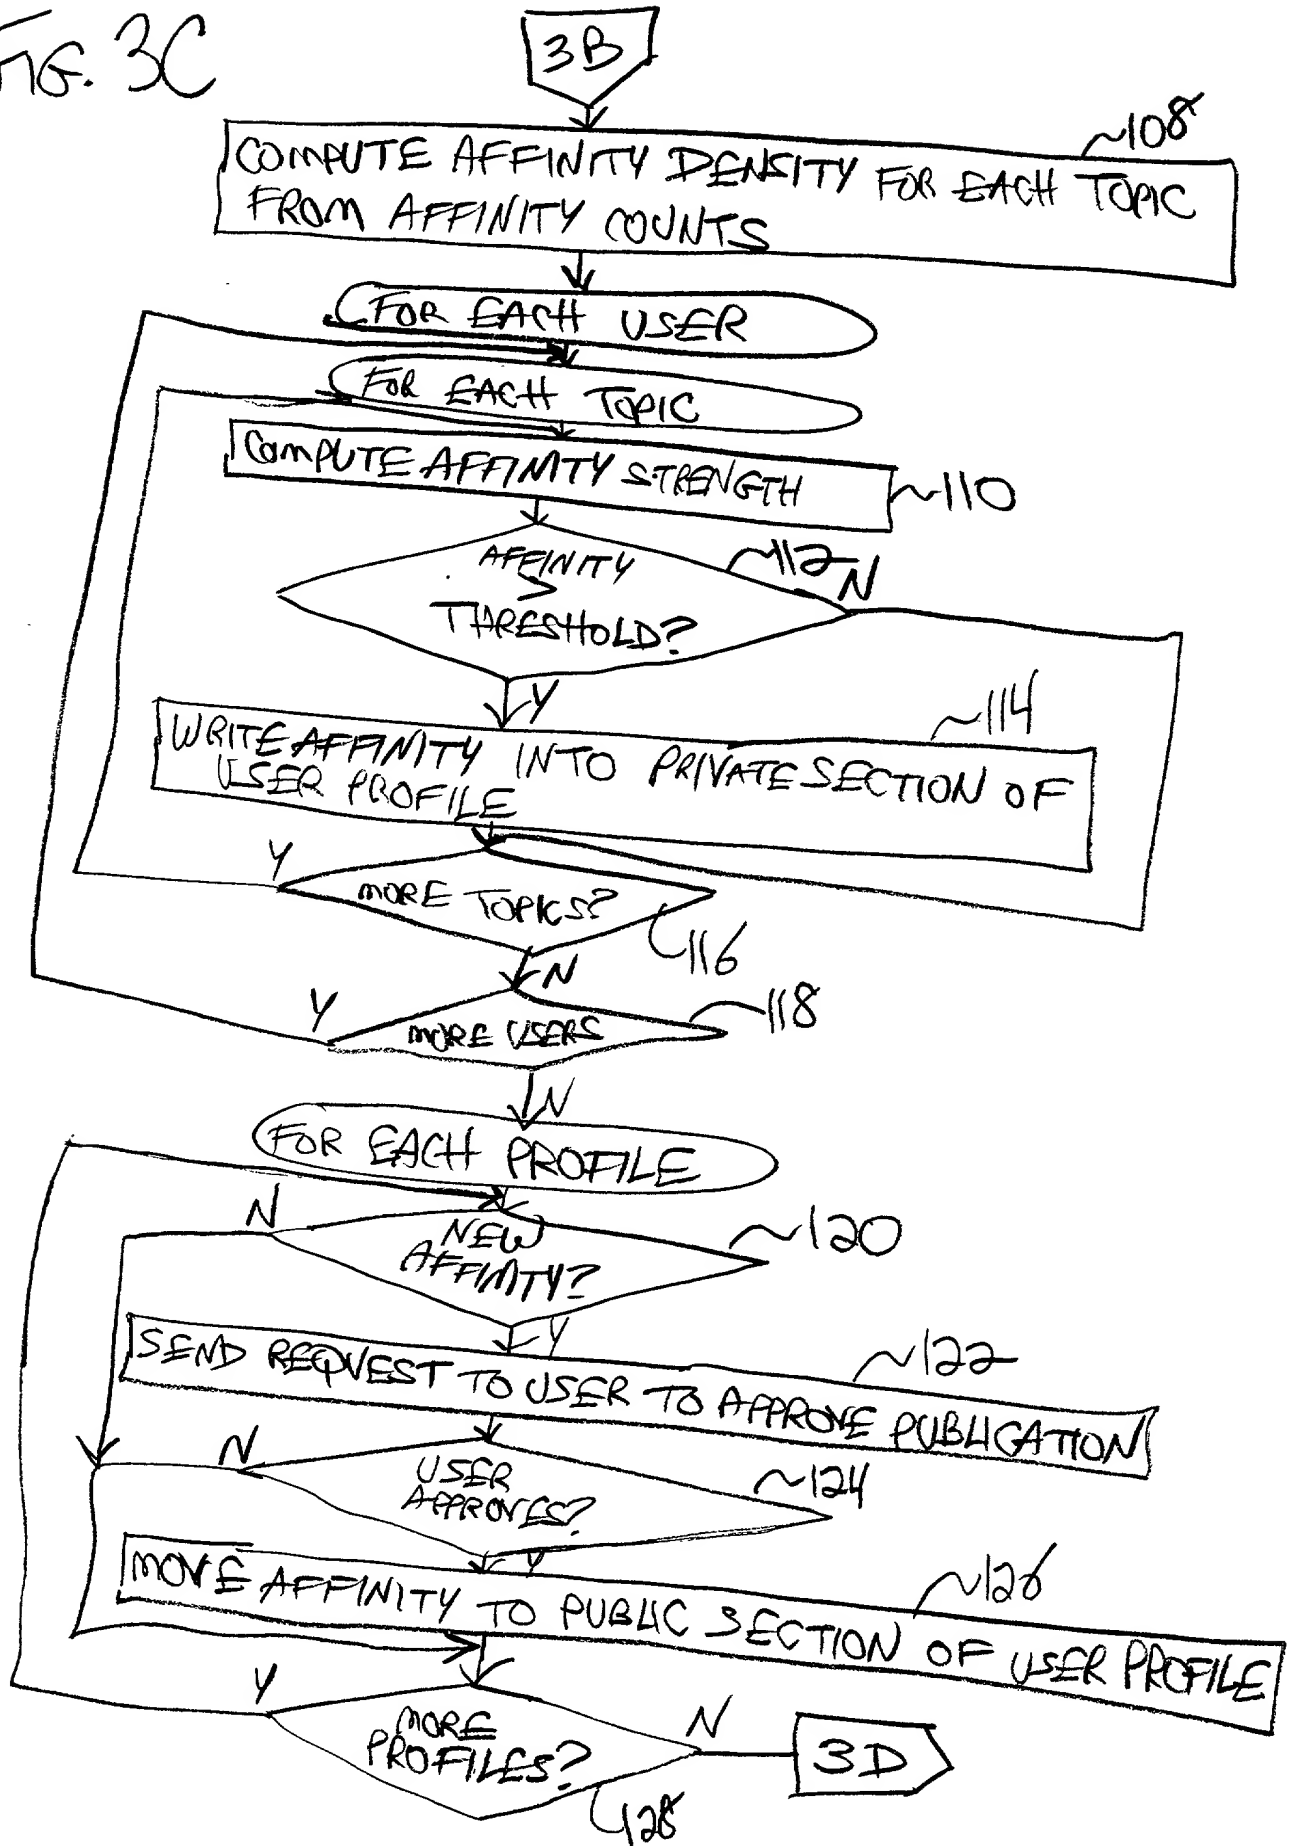 FIG. 3C
3B
~108
COMPUTE AFFINITY DENSITY FOR EACH TOPIC
FROM AFFINITY COUNTS
FOR EACH USER
FOR EACH TOPIC
COMPUTE AFFINITY STRENGTH
~110
AFFINITY
>
THRESHOLD?
~112
N
Y
~114
WRITE AFFINITY INTO PRIVATE SECTION OF
USER PROFILE
Y
MORE TOPICS?
116
N
Y
MORE USERS
~118
N
FOR EACH PROFILE
N
NEW
AFFINITY?
~120
Y
~122
SEND REQUEST TO USER TO APPROVE PUBLICATION
N
USER
APPROVES?
~124
Y
~126
MOVE AFFINITY TO PUBLIC SECTION OF USER PROFILE
Y
MORE
PROFILES?
N
3D
128